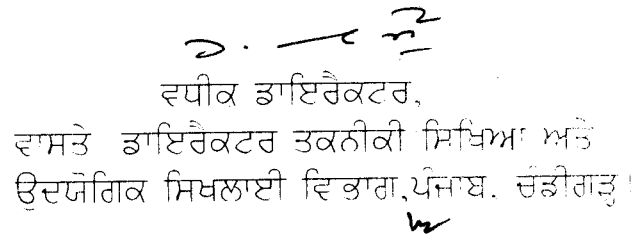 ਵਧੀਕ ਡਾਇਰੈਕਟਰ,
ਵਾਸਤੇ ਡਾਇਰੈਕਟਰ ਤਕਨੀਕੀ ਸਿਖਿਆ ਅਤੇ
ਉਦਯੋਗਿਕ ਸਿਖਲਾਈ ਵਿਭਾਗ,ਪੰਜਾਬ. ਚੰਡੀਗੜ੍ਹ।